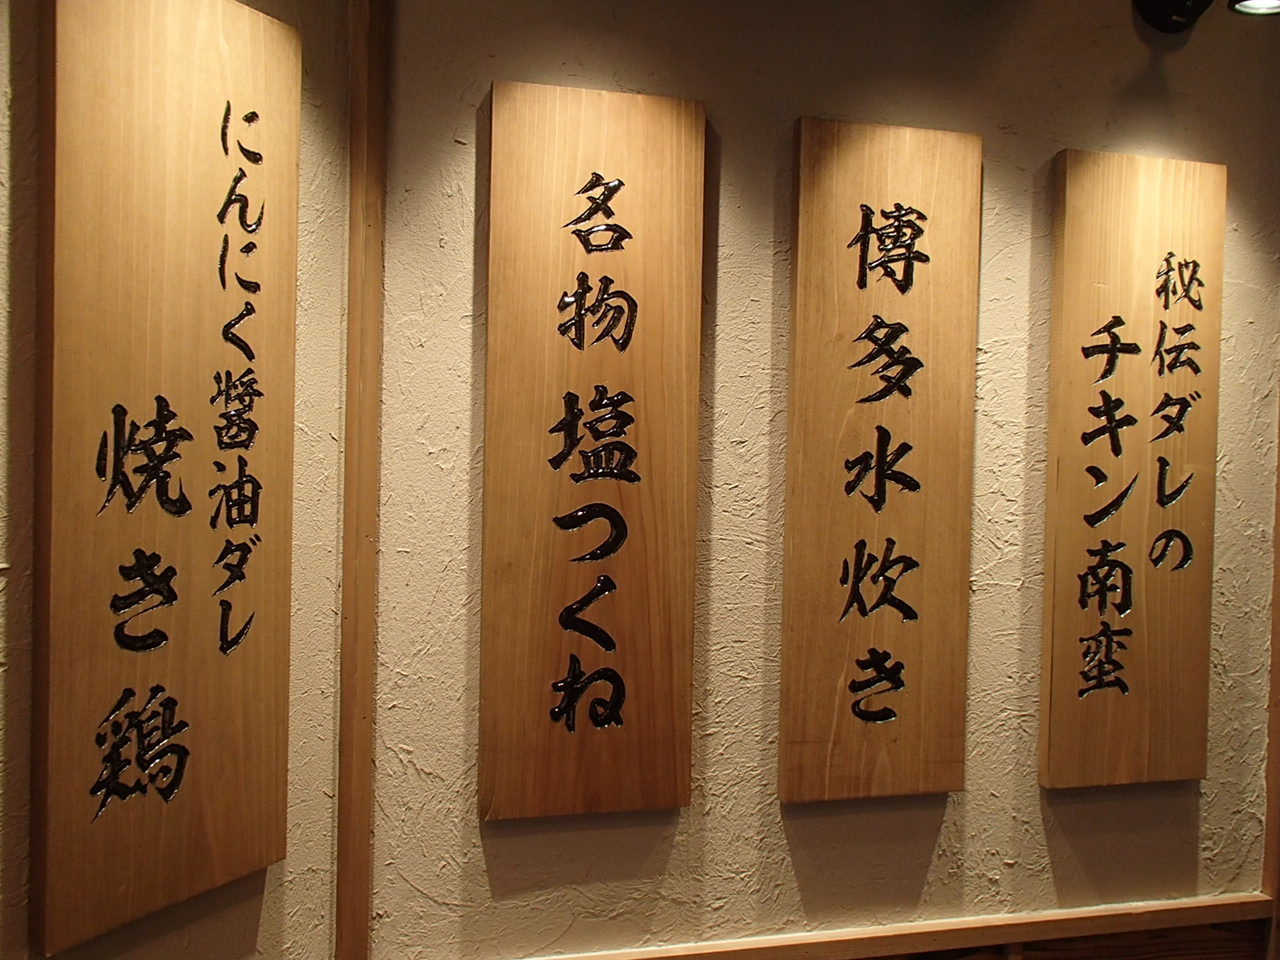 秘伝ダレの
チキン南蛮
博多水炊き
名物塩つくね
にんにく醤油ダレ
焼き鶏